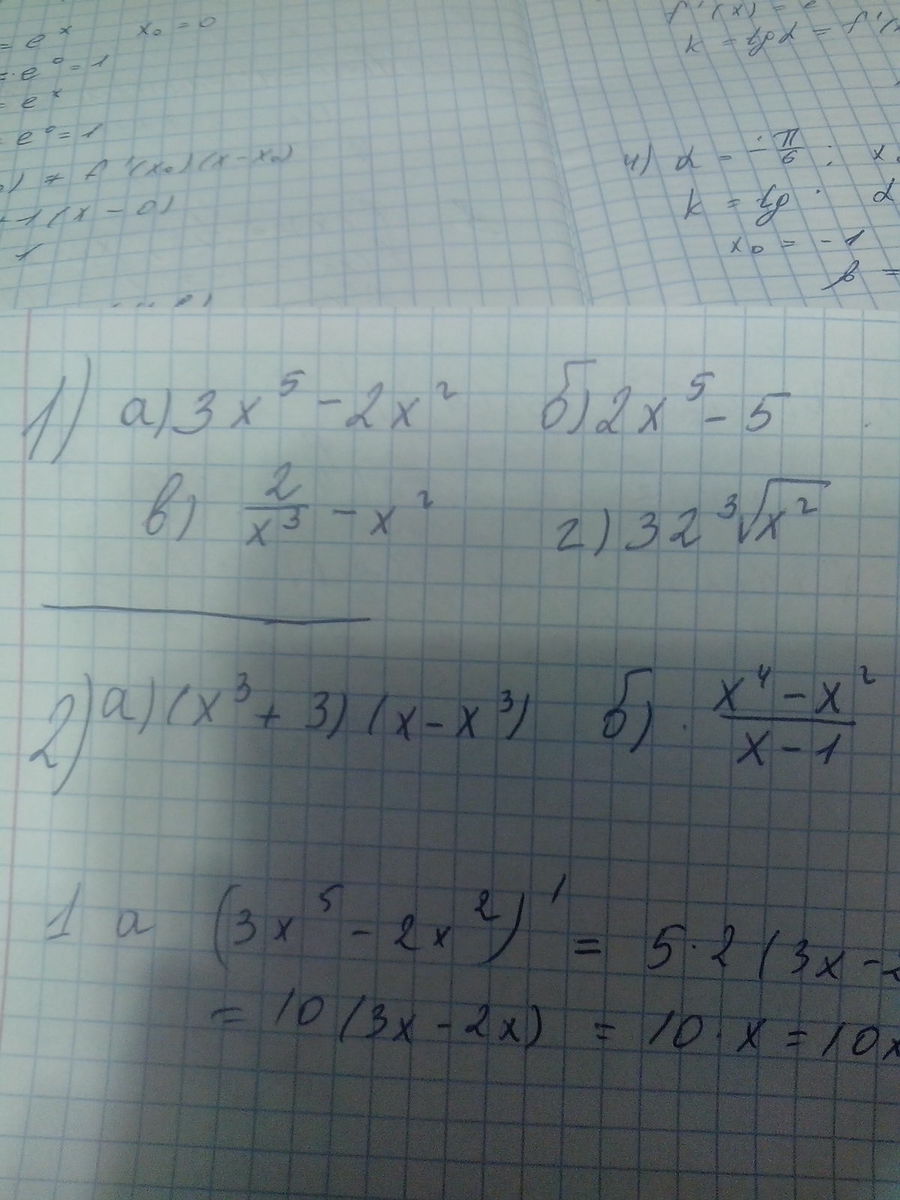 = eˣ x₀ = 0
= e⁰ = 1
= eˣ
= e⁰ = 1
f'(x₀)(x - x₀)
1(x - 0)
1
f'(x) = e
k = tg α = f'(
4) α = - π/6 ; x
k = tg α
x₀ = -1
b =
1) а) 3x⁵ - 2x² б) 2x⁵ - 5
в) 2/x³ - x² г) 32 ∛x²
2) а) (x³ + 3)(x - x³) б) (x⁴ - x²)/(x - 1)
1 а (3x⁵ - 2x²)' = 5·2 (3x - 2
= 10 (3x - 2x) = 10·x = 10x